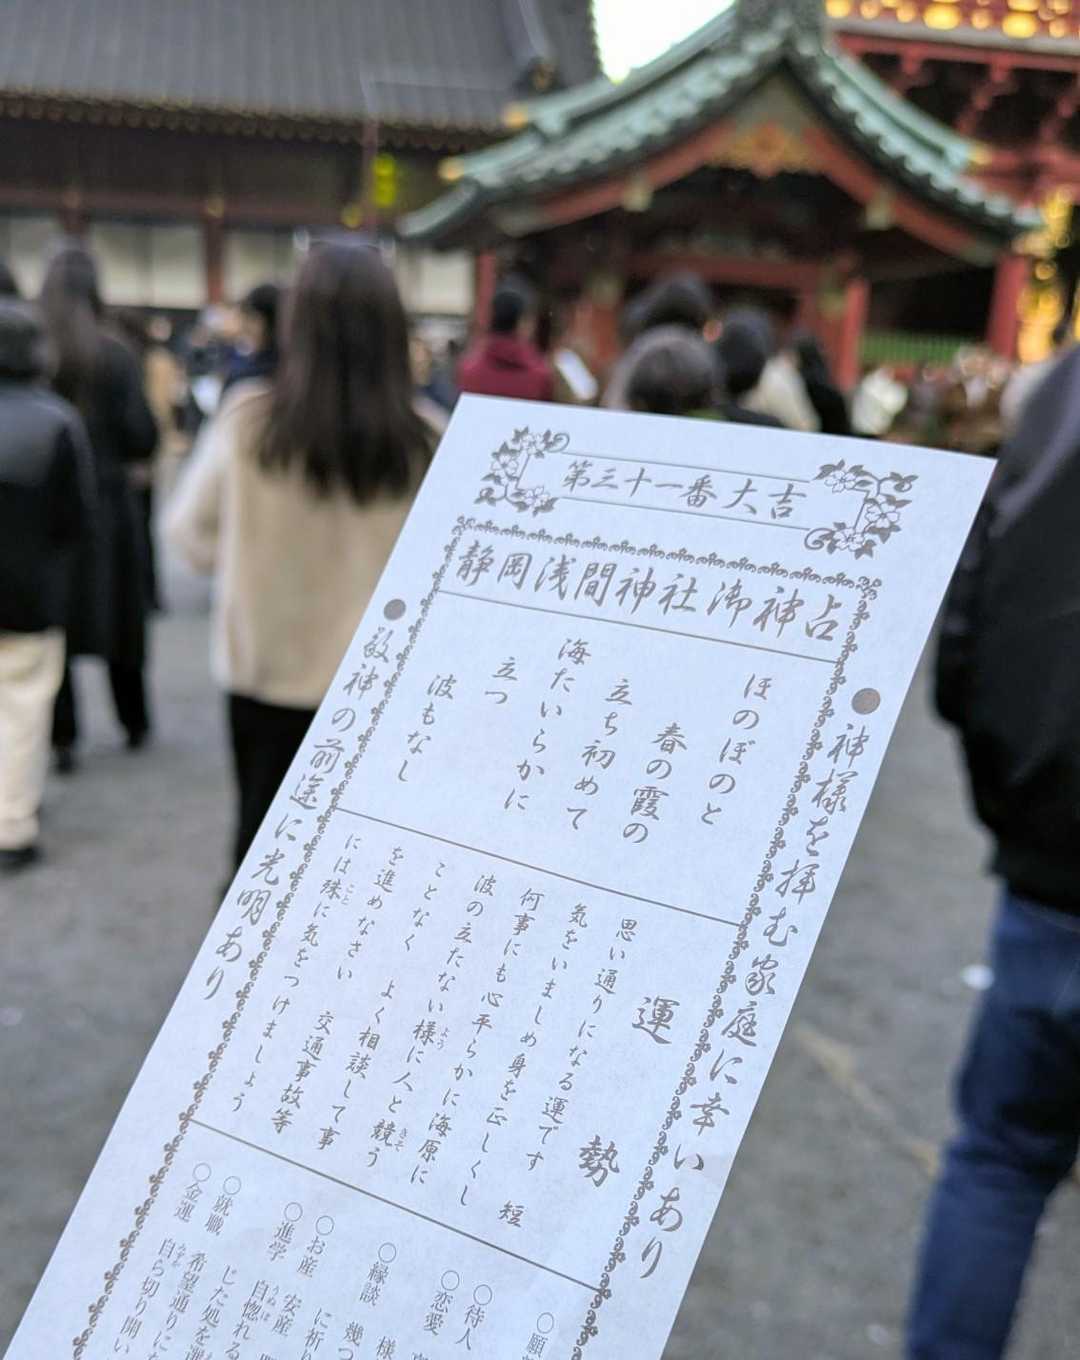 第三十一番大吉
静岡浅間神社御神占
●神様を拝む家庭に幸いあり
ほのぼのと
春の霞の
立ち初めて
海たいらかに
立つ
波もなし
運勢
思い通りになる運です 短
気をいましめ身を正しくし
何事にも心平らかに海原に
波の立たない様に人と競う
ことなく よく相談して事
を進めなさい 交通事故等
には殊に気をつけましょう
●敬神の前途に光明あり
○願
○待人
○恋愛
○縁談 幾つ
○お産 に祈り
○進学 安産
自惚れる
○就職 じた処を選
希望通りにな
○金運 自ら切り開い